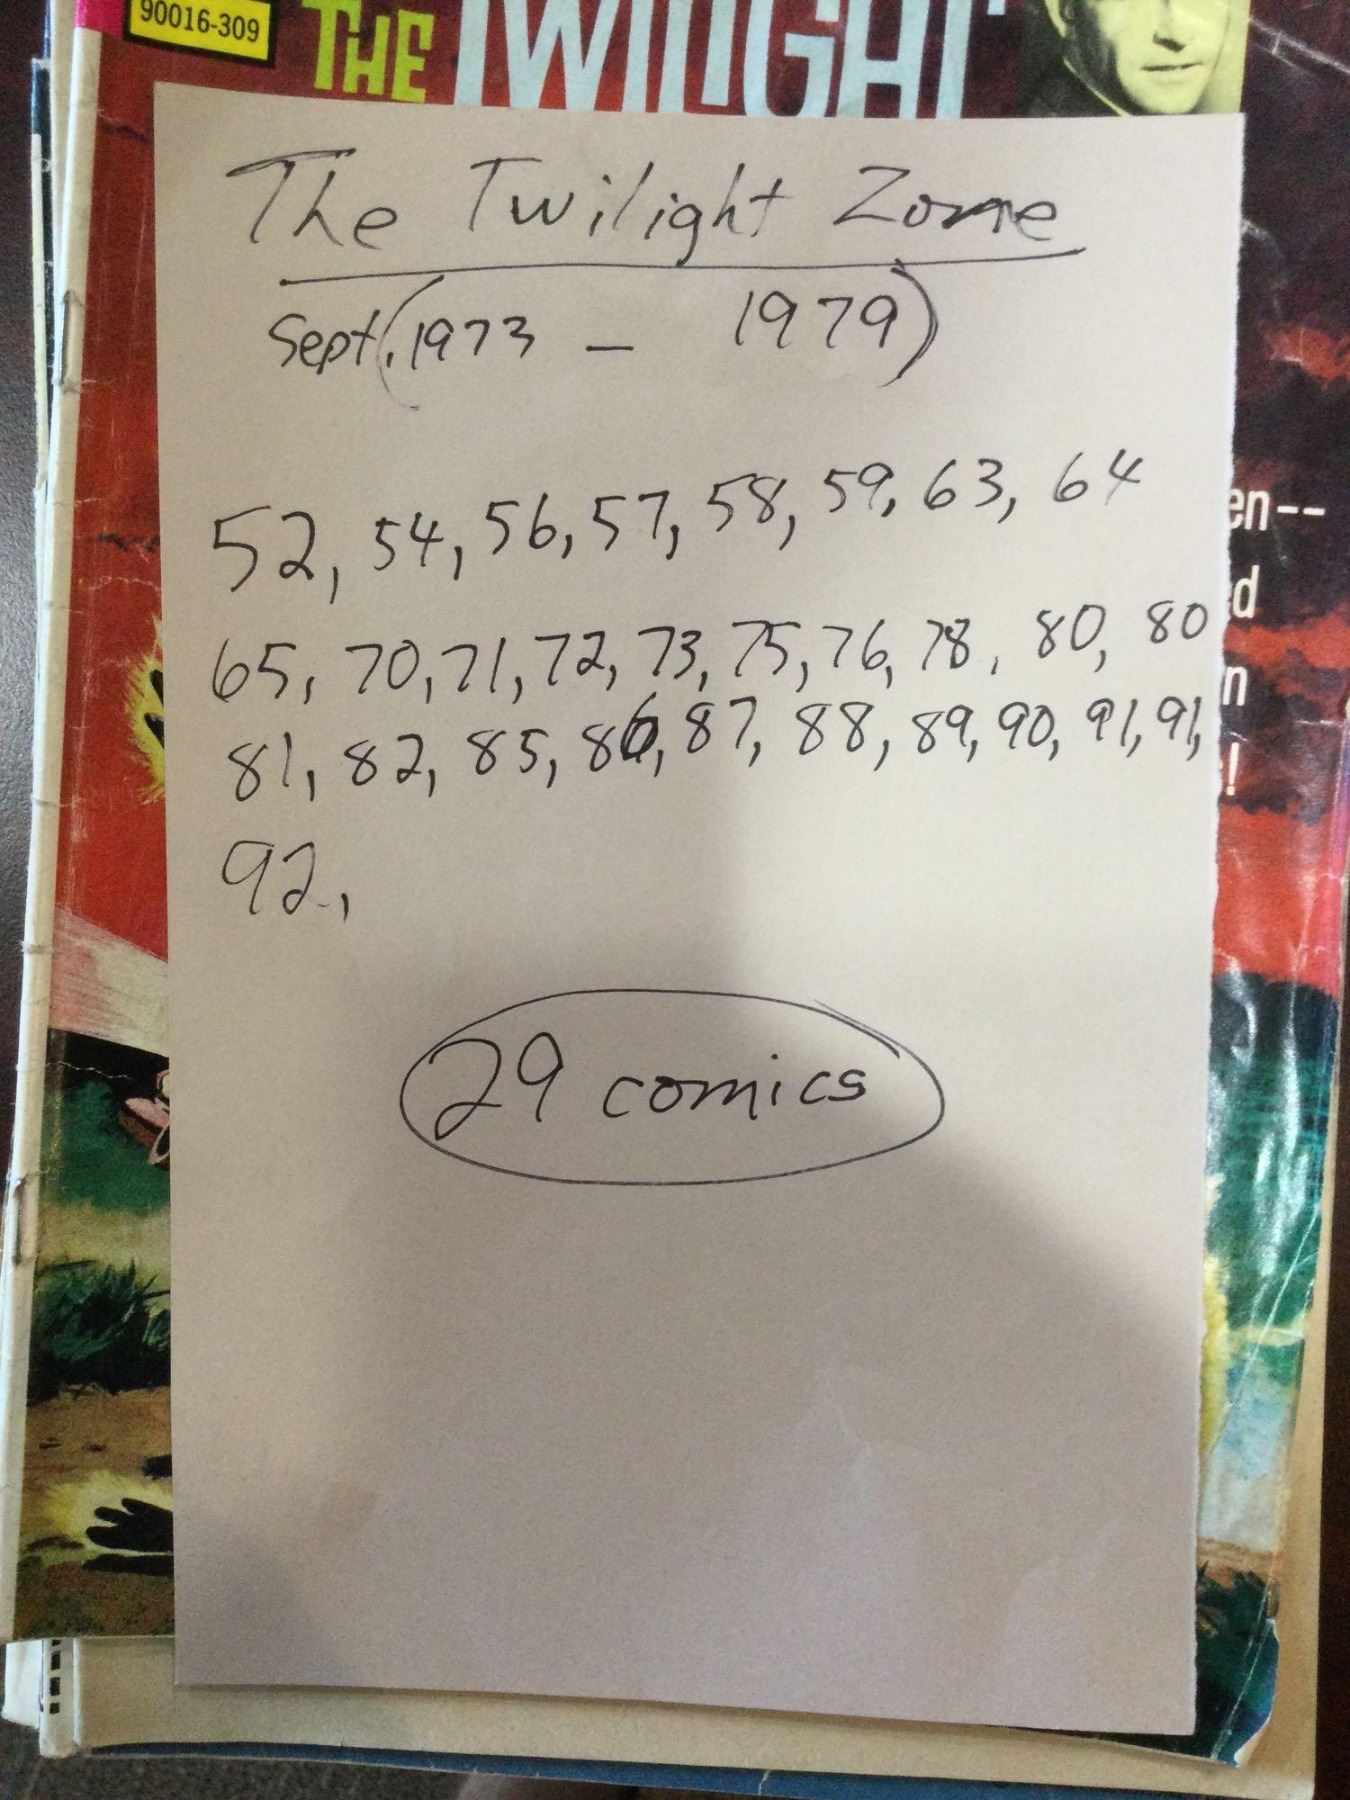 90016-309
THE TWILIGHT
The Twilight Zone
Sept. (1973 - 1979)
52, 54, 56, 57, 58, 59, 63, 64
65, 70, 71, 72, 73, 75, 76, 78, 80, 80
81, 82, 85, 86, 87, 88, 89, 90, 91, 91,
92,
29 comics
en--